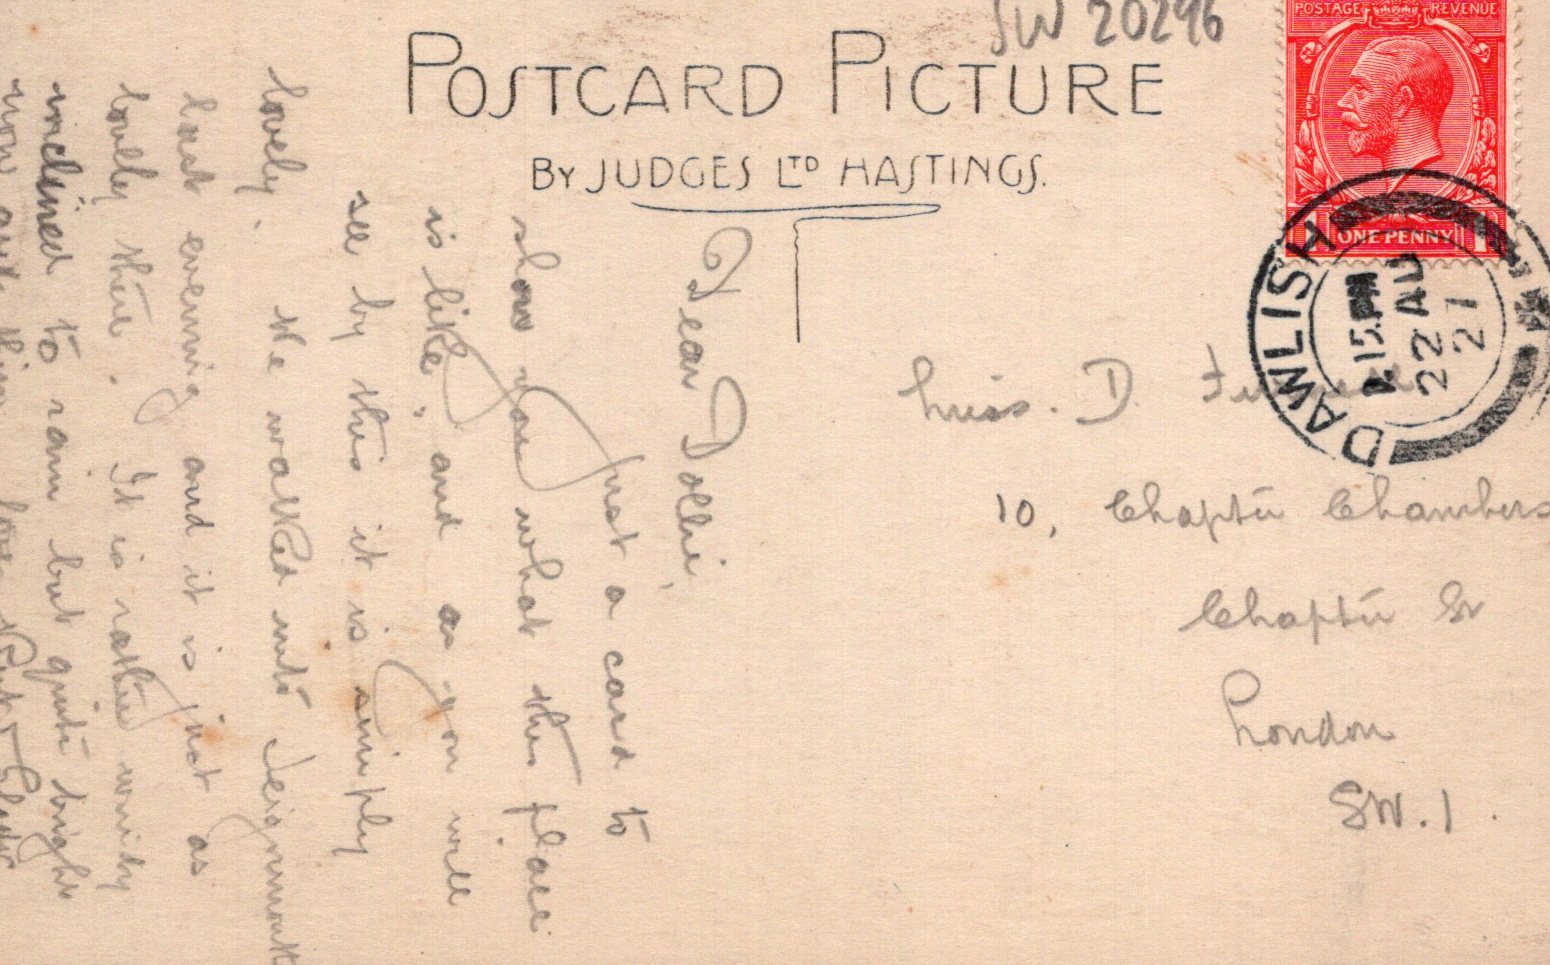 SW 20296
POSTCARD PICTURE
BY JUDGES LTD HASTINGS.
POSTAGE REVENUE
1 ONE PENNY 1
DAWLISH
15 PM
22 AU
27
Miss. D.
10, Chapter Chambers
Chapter St
London
SW.1.
Dear Dolli,
Just a card to
show you what this place
is like, and as you will
see by this it is simply
lovely. We walked into Teignmouth
last evening and it is just as
lovely there. It is rather windy
inclined to rain but quite bright
now and